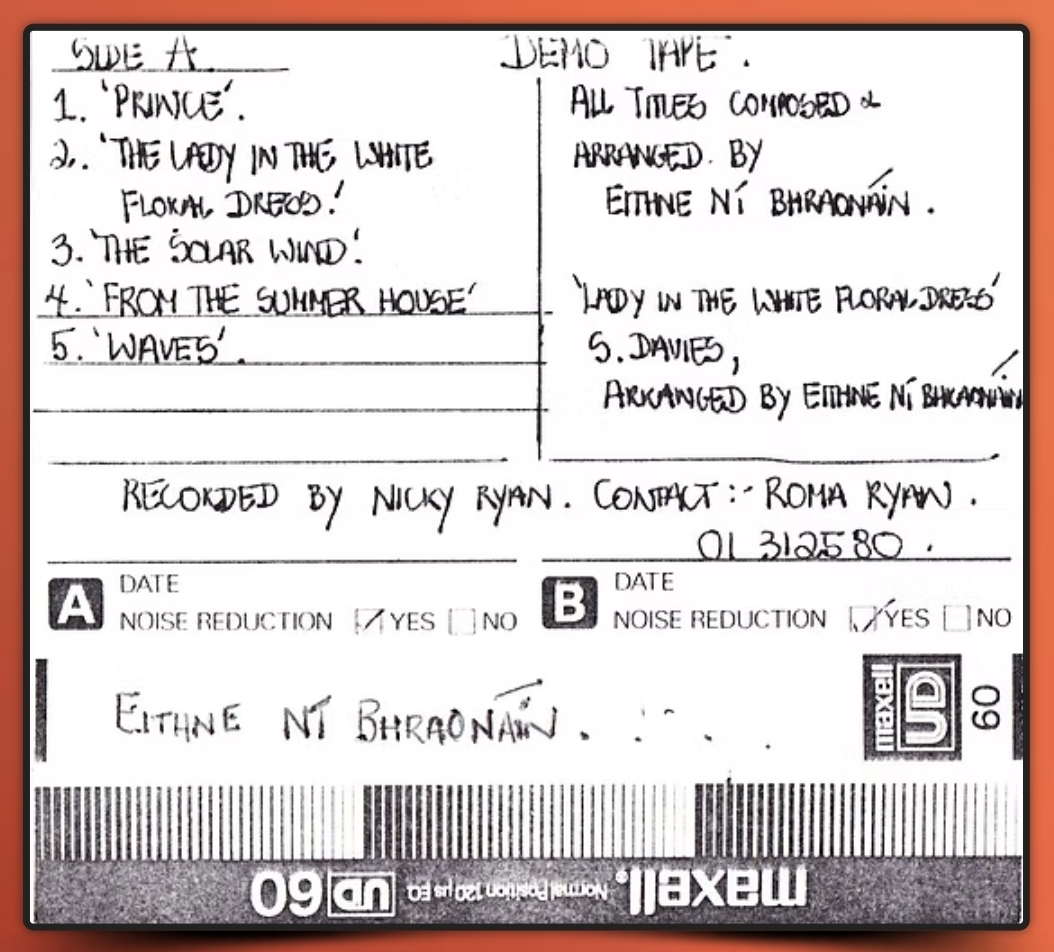 SIDE A
1. 'PRINCE'.
2. 'THE LADY IN THE WHITE
FLORAL DRESS.'
3. 'THE SOLAR WIND'.
4. 'FROM THE SUMMER HOUSE'
5. 'WAVES'.
"DEMO TAPE".
ALL TITLES COMPOSED &
ARRANGED BY
EITHNE NÍ BHRAONÁIN.
'LADY IN THE WHITE FLORAL DRESS'
S. DAVIES,
ARRANGED BY EITHNE NÍ BHRAONÁIN
RECORDED BY NICKY RYAN. CONTACT :- ROMA RYAN.
01 312580.
A DATE
NOISE REDUCTION YES NO
B DATE
NOISE REDUCTION YES NO
EITHNE NÍ BHRAONÁIN.
maxell UD 60
maxell. Normal Position 120 µs EQ UD 60